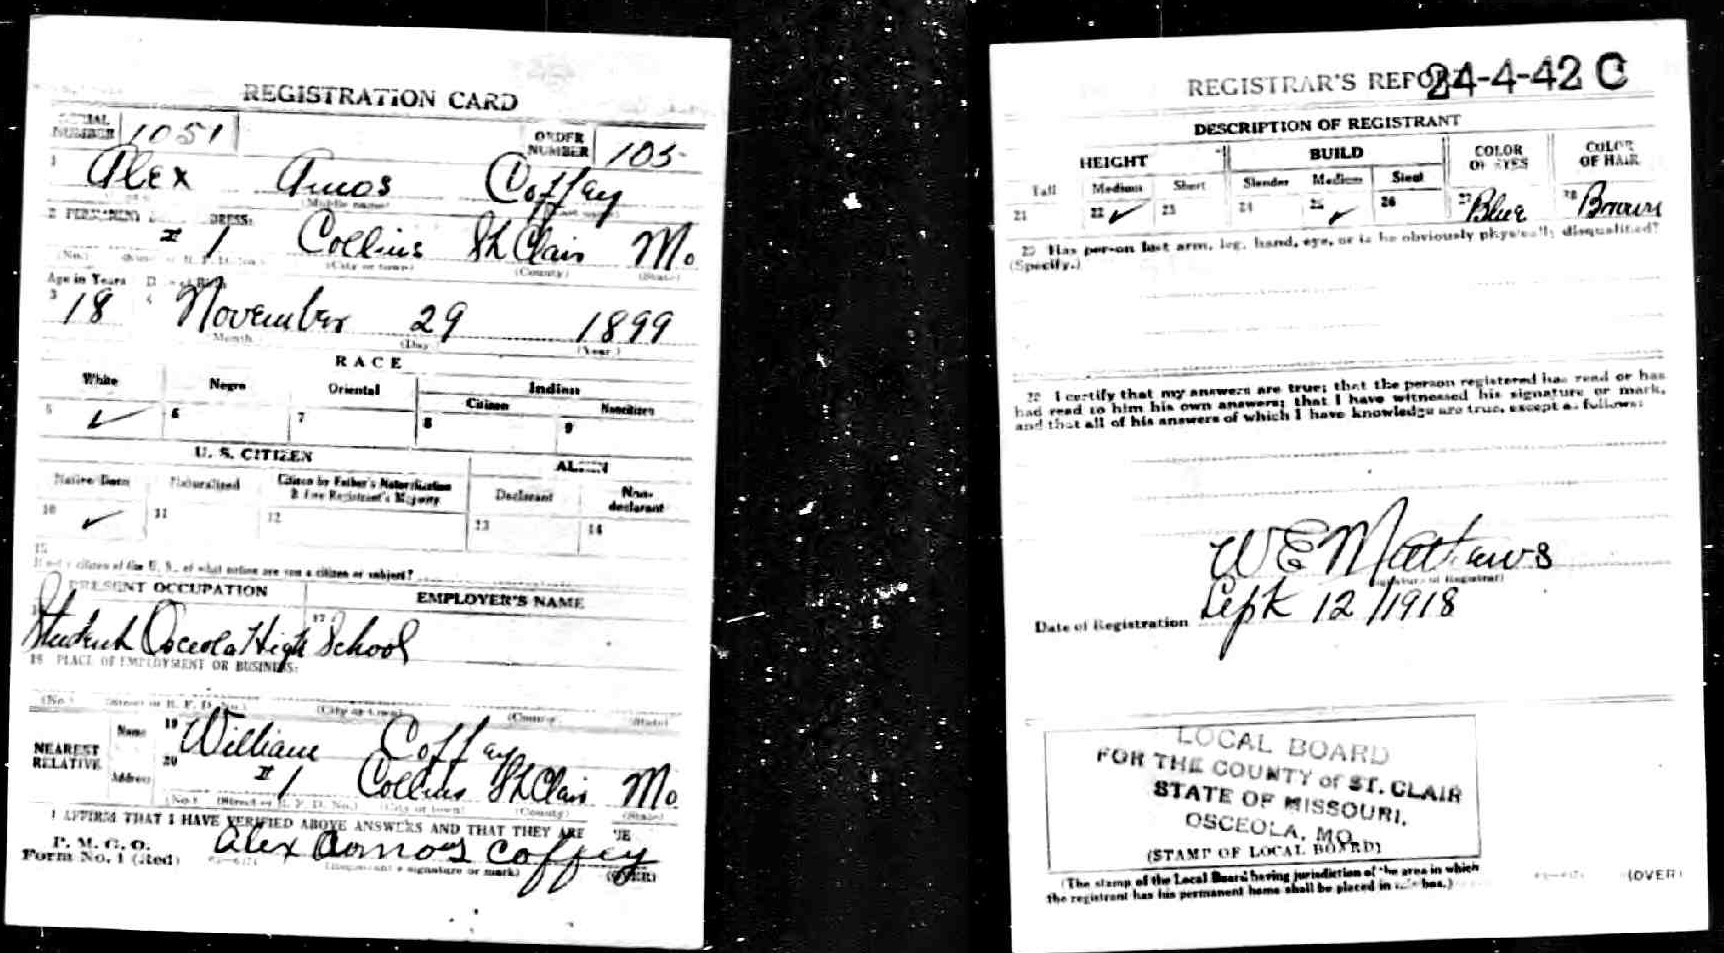 REGISTRATION CARD
SERIAL NUMBER 1051 ORDER NUMBER 105
1 Alex Amos Coffey
(Middle name)
2 PERMANENT ADDRESS:
# 1 Collins St Clair Mo
(No.) (City or town) (County) (State)
Age in Years
3 18 4 November 29 1899
Month (Day) (Year)
RACE
White Negro Oriental Indian
Citizen Noncitizen
5 ✓ 6 7 8 9
U. S. CITIZEN ALIEN
Native Born Naturalized Citizen by Father's Naturalization Before Registrant's Majority Declarant Non-declarant
10 ✓ 11 12 13 14
15
If not a citizen of the U. S., of what nation are you a citizen or subject?
PRESENT OCCUPATION EMPLOYER'S NAME
16 17
Student Osceola High School
18 PLACE OF EMPLOYMENT OR BUSINESS:
(No.) (Street or R. F. D. No.) (City or town) (County) (State)
NEAREST RELATIVE Name 19 William Coffey
Address 20 # 1 Collins St Clair Mo
(No.) (Street or R. F. D. No.) (City or town) (County) (State)
I AFFIRM THAT I HAVE VERIFIED ABOVE ANSWERS AND THAT THEY ARE
P. M. G. O.
Form No. 1 (Red) Alex Aomos Coffey
(Registrant's signature or mark) (OVER)
REGISTRAR'S REPORT 24-4-42 C
DESCRIPTION OF REGISTRANT
HEIGHT BUILD COLOR OF EYES COLOR OF HAIR
Tall Medium Short Slender Medium Stout
21 22 ✓ 23 24 25 ✓ 26 27 Blue 28 Brown
29 Has person lost arm, leg, hand, eye, or is he obviously physically disqualified?
(Specify.)
30 I certify that my answers are true; that the person registered has read or has
had read to him his own answers; that I have witnessed his signature or mark,
and that all of his answers of which I have knowledge are true, except as follows:
W E Mathews
(Signature of Registrar)
Date of Registration Sept 12 /1918
LOCAL BOARD
FOR THE COUNTY of ST. CLAIR
STATE OF MISSOURI,
OSCEOLA, MO.
(STAMP OF LOCAL BOARD)
(The stamp of the Local Board having jurisdiction of the area in which
the registrant has his permanent home shall be placed in this box.)
(OVER)